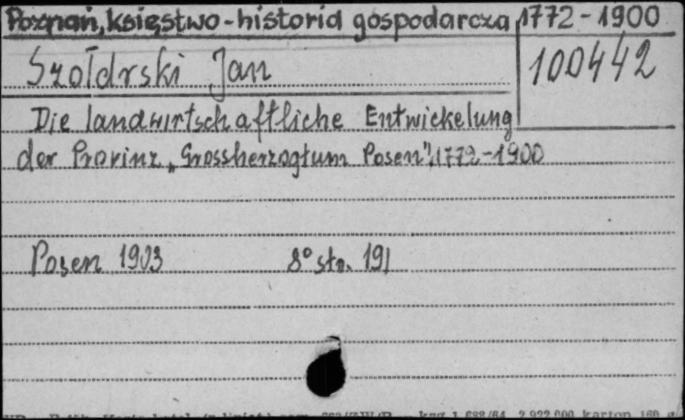 Poznań, księstwo - historia gospodarcza, 1772 - 1900
Szołdrski Jan
100442
Die landwirtschaftliche Entwickelung
der Provinz „Grossherzogtum Posen", 1772-1900
Posen 1903
8° str. 191